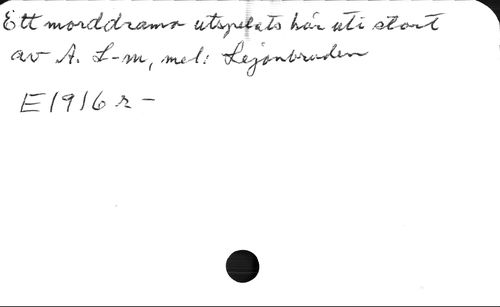 Ett morddrama utspelats här uti stort
av A. L-m, mel: Lejonbruden
E1916 r -